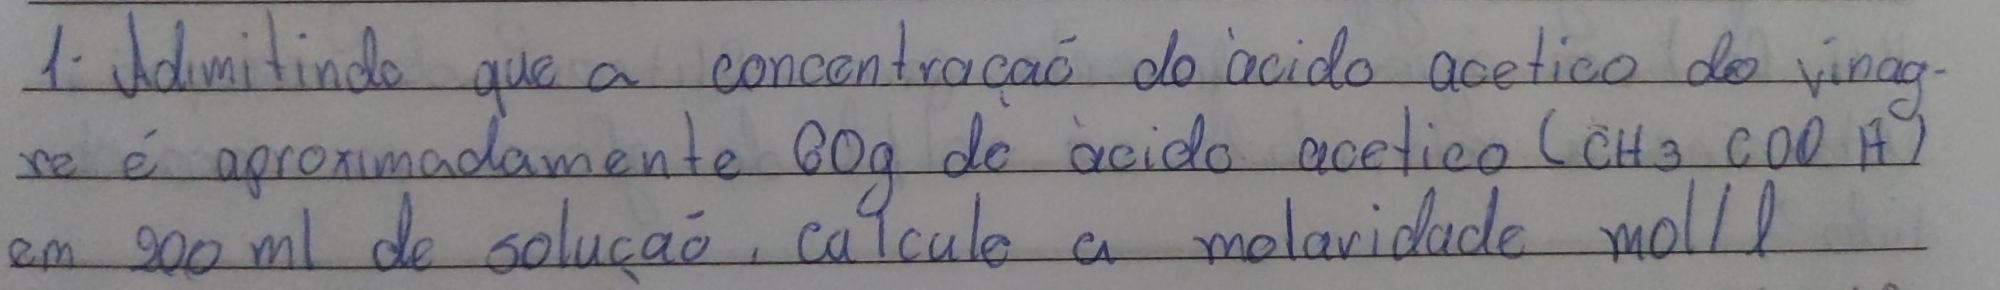 1. Admitindo que a concentração do àcido acetico do vinag-
re é aproximadamente 60g de àcido acetico (CH3 COO H)
em 900 ml de solução, calcule a molaridade mol/l